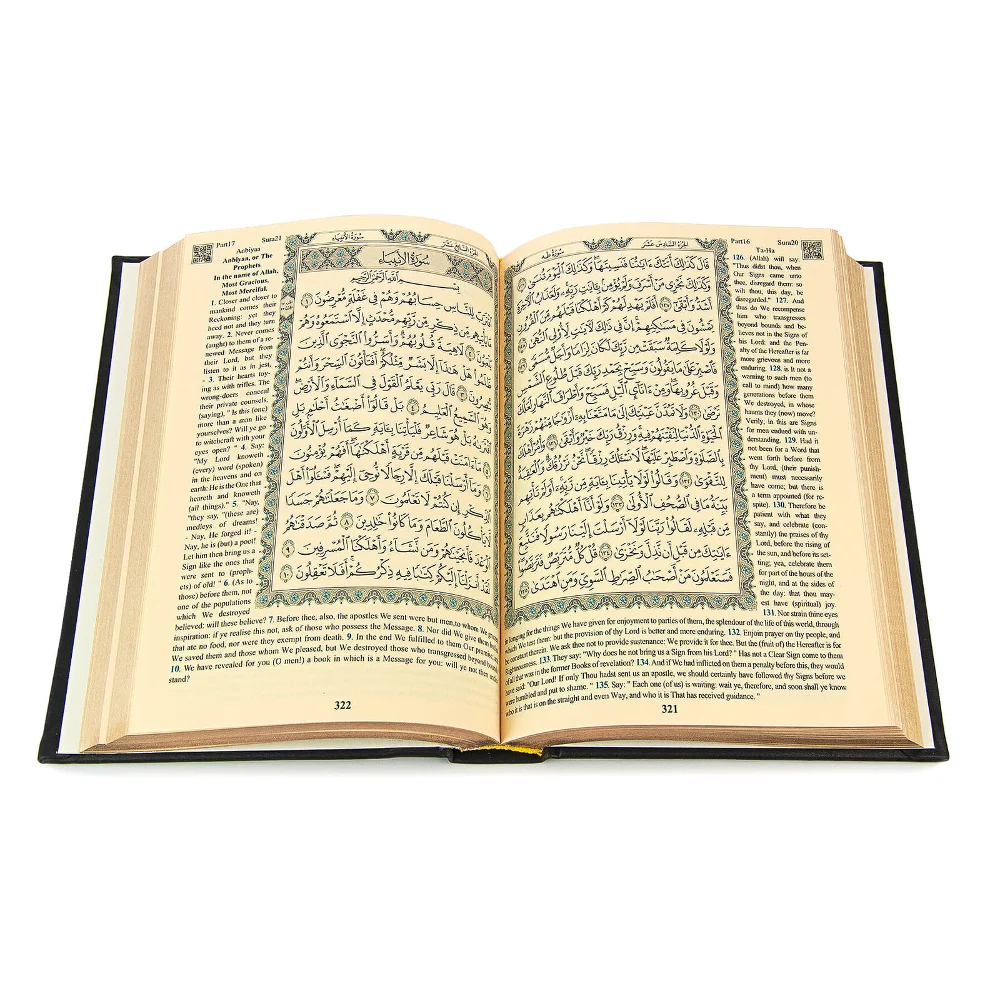 Part16 Sura20
Ta-Ha
سُورَةُ طه
الجُزْءُ السَّادِسَ عَشَرَ
قَالَ كَذَٰلِكَ أَتَتْكَ ءَايَٰتُنَا فَنَسِيتَهَا ۖ وَكَذَٰلِكَ ٱلْيَوْمَ تُنسَىٰ ١٢٦
وَكَذَٰلِكَ نَجْزِى مَنْ أَسْرَفَ وَلَمْ يُؤْمِنۢ بِـَٔايَٰتِ رَبِّهِۦ ۚ وَلَعَذَابُ ٱلْءَاخِرَةِ
أَشَدُّ وَأَبْقَىٰٓ ١٢٧ أَفَلَمْ يَهْدِ لَهُمْ كَمْ أَهْلَكْنَا قَبْلَهُم مِّنَ ٱلْقُرُونِ
يَمْشُونَ فِى مَسَٰكِنِهِمْ ۗ إِنَّ فِى ذَٰلِكَ لَءَايَٰتٍ لِّأُو۟لِى ٱلنُّهَىٰ ١٢٨
وَلَوْلَا كَلِمَةٌ سَبَقَتْ مِن رَّبِّكَ لَكَانَ لِزَامًا وَأَجَلٌ مُّسَمًّى ١٢٩
فَٱصْبِرْ عَلَىٰ مَا يَقُولُونَ وَسَبِّحْ بِحَمْدِ رَبِّكَ قَبْلَ طُلُوعِ ٱلشَّمْسِ
وَقَبْلَ غُرُوبِهَا ۖ وَمِنْ ءَانَآئِ ٱلَّيْلِ فَسَبِّحْ وَأَطْرَافَ ٱلنَّهَارِ لَعَلَّكَ
تَرْضَىٰ ١٣٠ وَلَا تَمُدَّنَّ عَيْنَيْكَ إِلَىٰ مَا مَتَّعْنَا بِهِۦٓ أَزْوَٰجًا مِّنْهُمْ زَهْرَةَ
ٱلْحَيَوٰةِ ٱلدُّنْيَا لِنَفْتِنَهُمْ فِيهِ ۚ وَرِزْقُ رَبِّكَ خَيْرٌ وَأَبْقَىٰ ١٣١ وَأْمُرْ أَهْلَكَ
بِٱلصَّلَوٰةِ وَٱصْطَبِرْ عَلَيْهَا ۖ لَا نَسْـَٔلُكَ رِزْقًا ۖ نَّحْنُ نَرْزُقُكَ ۗ وَٱلْعَٰقِبَةُ
لِلتَّقْوَىٰ ١٣٢ وَقَالُوا۟ لَوْلَا يَأْتِينَا بِـَٔايَةٍ مِّن رَّبِّهِۦٓ ۚ أَوَلَمْ تَأْتِهِم
بَيِّنَةُ مَا فِى ٱلصُّحُفِ ٱلْأُولَىٰ ١٣٣ وَلَوْ أَنَّآ أَهْلَكْنَٰهُم بِعَذَابٍ
مِّن قَبْلِهِۦ لَقَالُوا۟ رَبَّنَا لَوْلَآ أَرْسَلْتَ إِلَيْنَا رَسُولًا فَنَتَّبِعَ
ءَايَٰتِكَ مِن قَبْلِ أَن نَّذِلَّ وَنَخْزَىٰ ١٣٤ قُلْ كُلٌّ مُّتَرَبِّصٌ فَتَرَبَّصُوا۟ ۖ
فَسَتَعْلَمُونَ مَنْ أَصْحَٰبُ ٱلصِّرَٰطِ ٱلسَّوِىِّ وَمَنِ ٱهْتَدَىٰ ١٣٥
126. (Allah) will say:
"Thus didst thou, when
Our Signs came unto
thee, disregard them: so
wilt thou, this day, be
disregarded." 127. And
thus do We recompense
him who transgresses
beyond bounds and be-
lieves not in the Signs of
his Lord: and the Pen-
alty of the Hereafter is far
more grievous and more
enduring. 128. is It not a
warning to such men (to
call to mind) how many
generations before them
We destroyed, in whose
haunts they (now) move?
Verily, in this are Signs
for men endued with un-
derstanding. 129. Had it
not been for a Word that
went forth before from
thy Lord, (their punish-
ment) must necessarily
have come; but there is
a term appointed (for re-
spite). 130. Therefore be
patient with what they
say, and celebrate (con-
stantly) the praises of thy
Lord, before the rising of
the sun, and before its set-
ting; yea, celebrate them
for part of the hours of the
night, and at the sides of
the day: that thou may-
est have (spiritual) joy.
131. Not strain thine eyes
in longing for the things We have given for enjoyment to parties of them, the splendour of the life of this world, through
which We test them: but the provision of thy Lord is better and more enduring. 132. Enjoin prayer on thy people, and
be constant therein. We ask thee not to provide sustenance: We provide it for thee. But the (fruit of) the Hereafter is for
Righteousness. 133. They say: "Why does he not bring us a Sign from his Lord? " Has not a Clear Sign come to them
of all that was in the former Books of revelation? 134. And if We had inflicted on them a penalty before this, they would
have said: "Our Lord! If only Thou hadst sent us an apostle, we should certainly have followed thy Signs before we
were humbled and put to shame. " 135. Say: " Each one (of us) is waiting: wait ye, therefore, and soon shall ye know
who it is that is on the straight and even Way, and who it is That has received guidance. "
321
Part17 Sura21
سُورَةُ الأَنبِيَاءِ
الجُزْءُ السَّابِعَ عَشَرَ
Anbiyaa
Anbiyaa, or The
Prophets
In the name of Allah,
Most Gracious,
Most Merciful.
سُورَةُ الأَنبِيَاءِ
بِسْمِ ٱللَّهِ ٱلرَّحْمَٰنِ ٱلرَّحِيمِ
ٱقْتَرَبَ لِلنَّاسِ حِسَابُهُمْ وَهُمْ فِى غَفْلَةٍ مُّعْرِضُونَ ١
مَا يَأْتِيهِم مِّن ذِكْرٍ مِّن رَّبِّهِم مُّحْدَثٍ إِلَّا ٱسْتَمَعُوهُ وَهُمْ
يَلْعَبُونَ ٢ لَاهِيَةً قُلُوبُهُمْ ۗ وَأَسَرُّوا۟ ٱلنَّجْوَى ٱلَّذِينَ
ظَلَمُوا۟ هَلْ هَٰذَآ إِلَّا بَشَرٌ مِّثْلُكُمْ ۖ أَفَتَأْتُونَ ٱلسِّحْرَ وَأَنتُمْ
تُبْصِرُونَ ٣ قَالَ رَبِّى يَعْلَمُ ٱلْقَوْلَ فِى ٱلسَّمَآءِ وَٱلْأَرْضِ ۖ
وَهُوَ ٱلسَّمِيعُ ٱلْعَلِيمُ ٤ بَلْ قَالُوٓا۟ أَضْغَٰثُ أَحْلَٰمٍۭ بَلِ
ٱفْتَرَىٰهُ بَلْ هُوَ شَاعِرٌ فَلْيَأْتِنَا بِـَٔايَةٍ كَمَآ أُرْسِلَ ٱلْأَوَّلُونَ
٥ مَآ ءَامَنَتْ قَبْلَهُم مِّن قَرْيَةٍ أَهْلَكْنَٰهَآ ۖ أَفَهُمْ يُؤْمِنُونَ
٦ وَمَآ أَرْسَلْنَا قَبْلَكَ إِلَّا رِجَالًا نُّوحِىٓ إِلَيْهِمْ ۖ فَسْـَٔلُوٓا۟ أَهْلَ
ٱلذِّكْرِ إِن كُنتُمْ لَا تَعْلَمُونَ ٧ وَمَا جَعَلْنَٰهُمْ جَسَدًا
لَّا يَأْكُلُونَ ٱلطَّعَامَ وَمَا كَانُوا۟ خَٰلِدِينَ ٨ ثُمَّ صَدَقْنَٰهُمُ
ٱلْوَعْدَ فَأَنجَيْنَٰهُمْ وَمَن نَّشَآءُ وَأَهْلَكْنَا ٱلْمُسْرِفِينَ ٩
لَقَدْ أَنزَلْنَآ إِلَيْكُمْ كِتَٰبًا فِيهِ ذِكْرُكُمْ ۖ أَفَلَا تَعْقِلُونَ ١٠
1. Closer and closer to
mankind comes their
Reckoning: yet they
heed not and they turn
away. 2. Never comes
(aught) to them of a re-
newed Message from
their Lord, but they
listen to it as in jest,
- 3. Their hearts toy-
ing as with trifles. The
wrong-doers conceal
their private counsels,
(saying), " Is this (one)
more than a man like
yourselves? Will ye go
to witchcraft with your
eyes open? " 4. Say:
"My Lord knoweth
(every) word (spoken)
in the heavens and on
earth: He is the One that
heareth and knoweth
(all things)." 5. "Nay,
"they say, "(these are)
medleys of dreams!
- Nay, He forged it! -
Nay, he is (but) a poet!
Let him then bring us a
Sign like the ones that
were sent to (proph-
ets) of old! " 6. (As to
those) before them, not
one of the populations
which We destroyed
believed: will these believe? 7. Before thee, also, the apostles We sent were but men,to whom We granted
inspiration: if ye realise this not, ask of those who possess the Message. 8. Nor did We give them bodies
that ate no food, nor were they exempt from death. 9. In the end We fulfilled to them Our promise, and
We saved them and those whom We pleased, but We destroyed those who transgressed beyond bounds.
10. We have revealed for you (O men!) a book in which is a Message for you: will ye not then under-
stand?
322